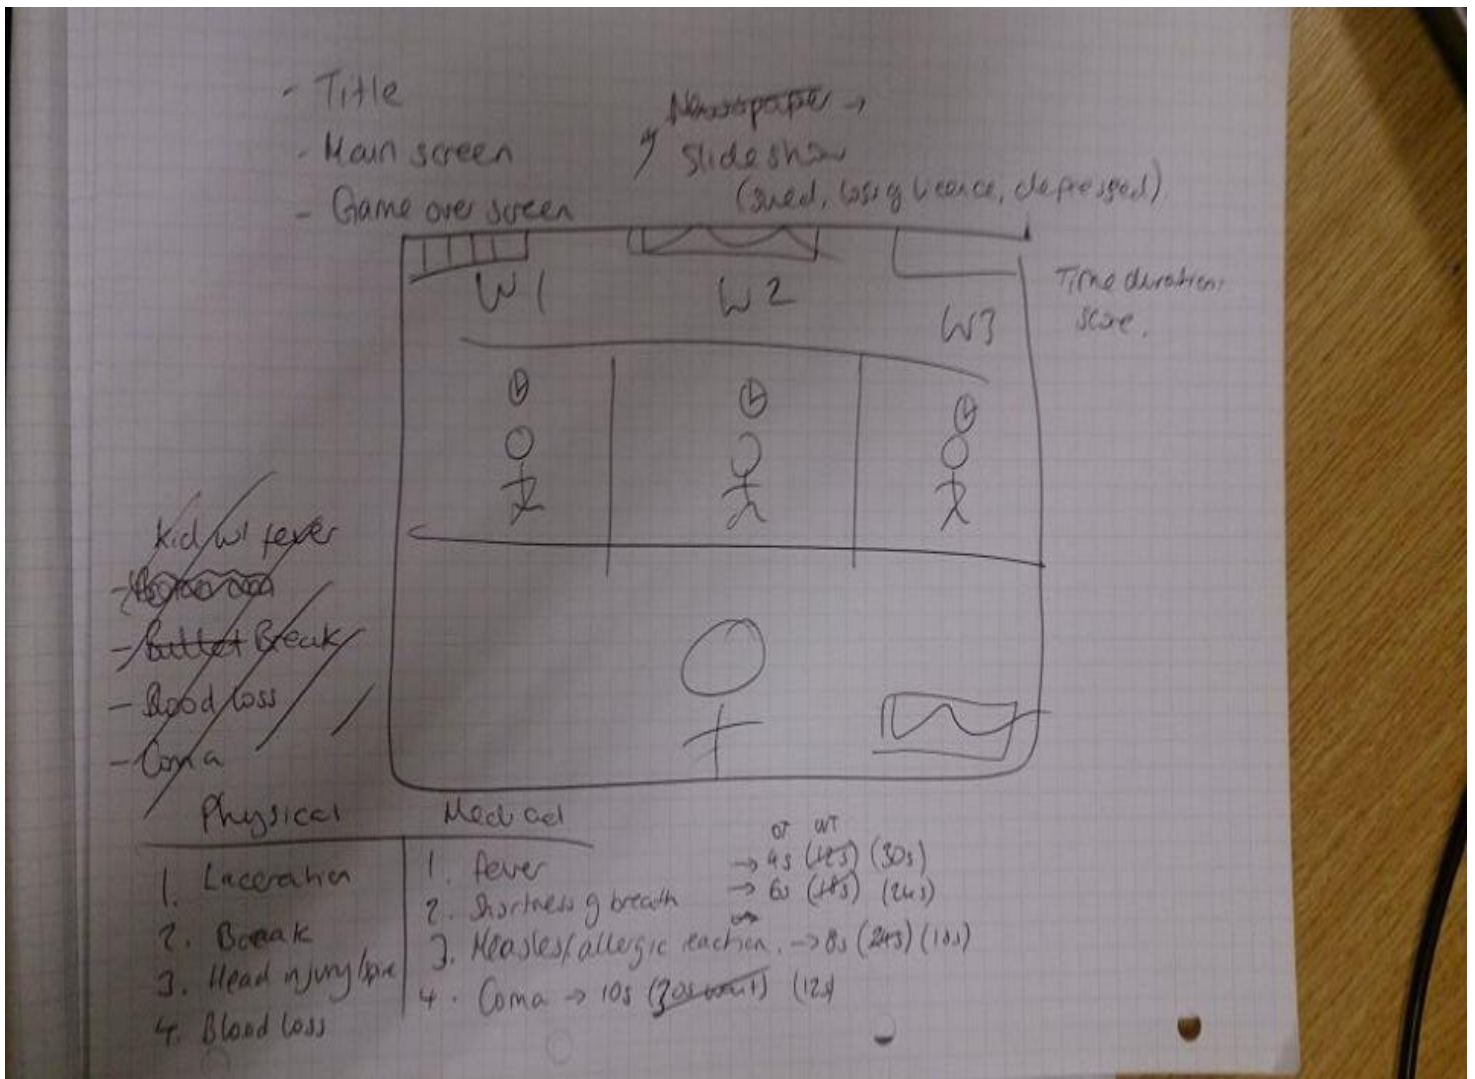 - Title
- Main screen
- Game over screen
Newspaper →
slideshow
(sued, losing licence, depressed).
W1
W2
W3
Time duration,
score.
Kid w/ fever
- Bullet Break
- Blood loss
- Coma
Physical
1. Laceration
2. Break
3. Head injury/spine
4. Blood loss
Medical
OT WT
1. fever → 4s (12s) (30s)
2. Shortness of breath → 6s (18s) (24s)
3. Measles/allergic reaction. → 8s (24s) (18s)
4. Coma → 10s (30s wait) (12s)